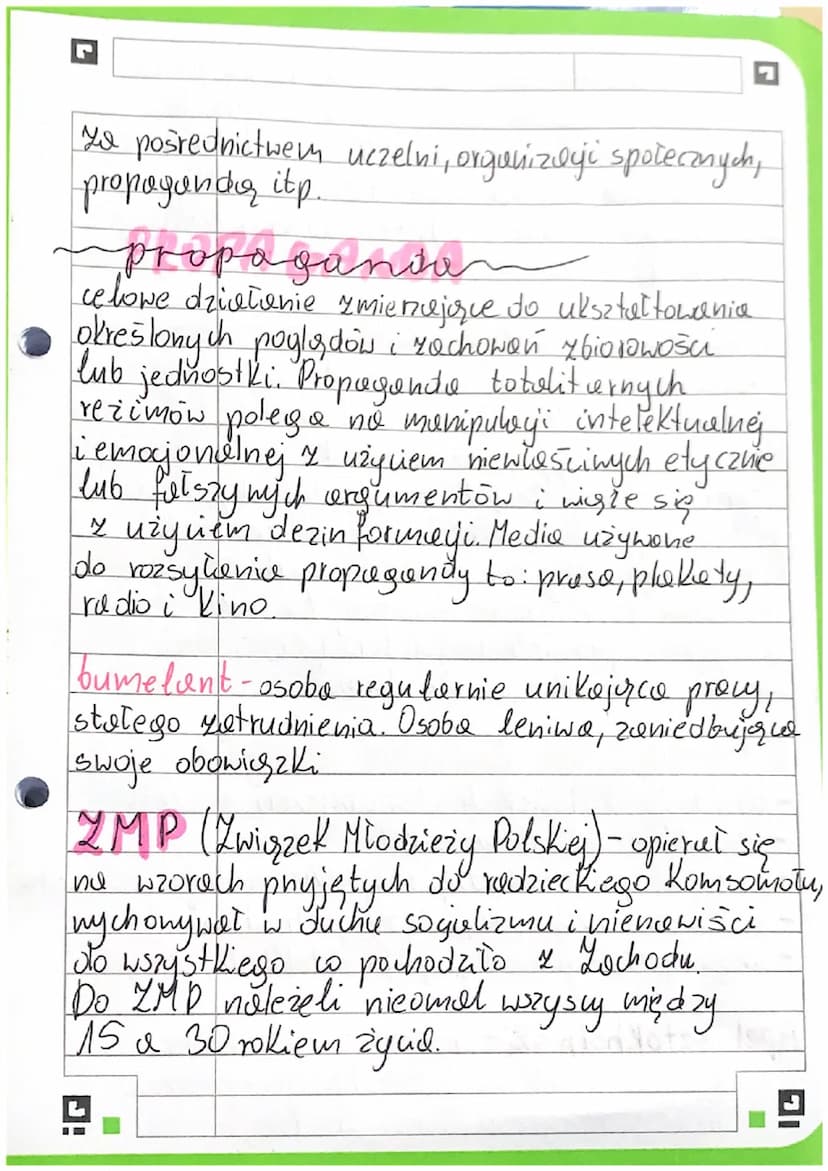 za pośrednictwem uczelni, organizacji społecznych,
propagandą itp.
propaganda
celowe działanie zmierzające do ukształtowania
określonych poglądów i zachowań zbiorowości
lub jednostki. Propaganda totalitarnych
reżimów polega na manipulacji intelektualnej
i emocjonalnej z użyciem niewłaściwych etycznie
lub fałszywych argumentów i wiąże się
z użyciem dezinformacji. Media używane
do rozsyłania propagandy to: prasa, plakaty,
radio i kino.
bumelant - osoba regularnie unikająca pracy,
stałego zatrudnienia. Osoba leniwa, zaniedbująca
swoje obowiązki
ZMP (Związek Młodzieży Polskiej) - opierał się
na wzorach przyjętych do radzieckiego Komsomołu,
wychowywał w duchu socjalizmu i nienawiści
do wszystkiego co pochodziło z Zachodu.
Do ZMP należeli nieomal wszyscy między
15 a 30 rokiem życia.